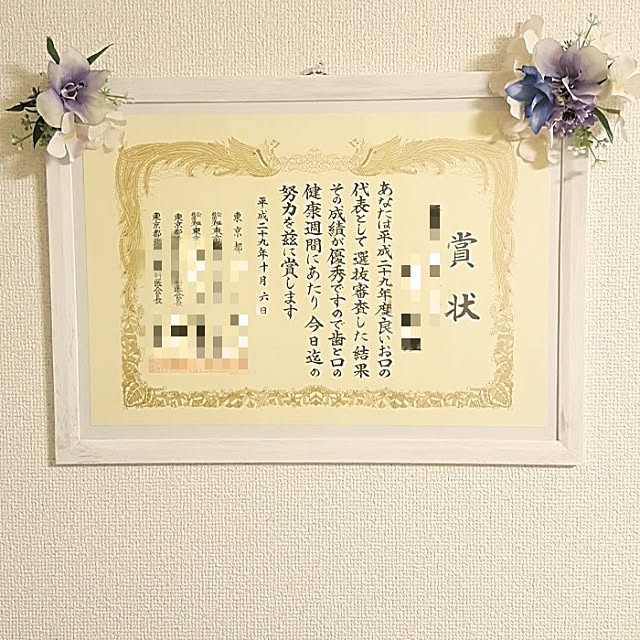 賞状
あなたは平成二十九年度良いお口の
代表として選抜審査した結果
その成績が優秀ですので歯と口の
健康週間にあたり今日迄の
努力を玆に賞します
平成二十九年十月六日
東京都
東京都
医会長
東京都
医会長